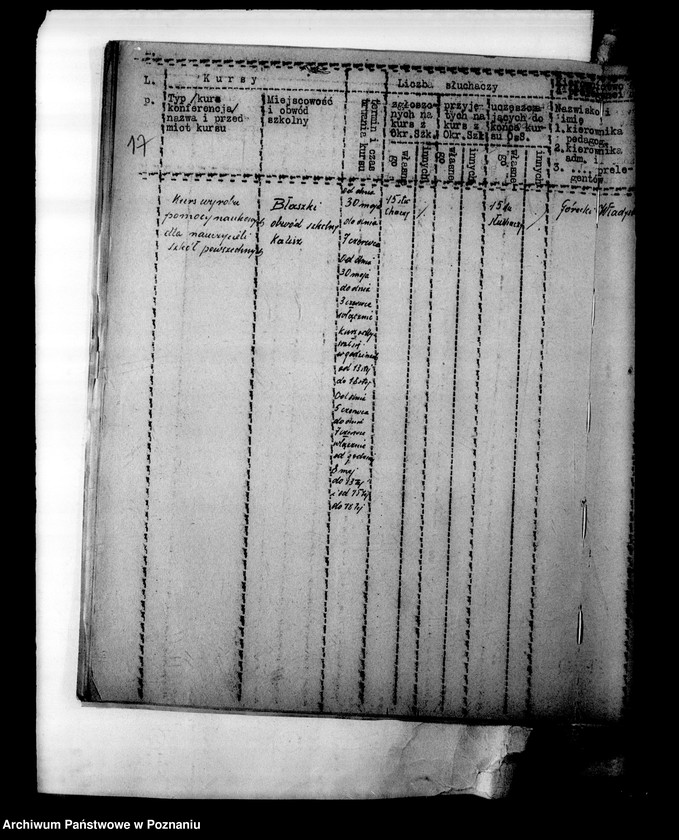 L.
p.
Kursy
Liczba słuchaczy
Typ /kurs
konferencja/
nazwa i przed
miot kursu
Miejscowość
i obwód
szkolny
termin i czas
trwania kursu
zgłoszo-
nych na
kurs z
Okr.Szk.
przyję-
tych na
kurs z
Okr.Szk.
uczęszcza-
jących do
końca kur-
su O.S.
własne
go
innych
własne
go
innych
własne
go
innych
Nazwisko i
imię
1. kierownika
pedagog.
2. kierownika
adm.
3. ... prele-
gentów
17
Kurs wyrobu
pomocy naukowych
dla nauczycieli
szkół powszechnych
Błaszki
obwód szkolny
Kalisz
od dnia
30 maja
do dnia
7 czerwca
Od dnia
30 maja
do dnia
3 czerwca
włącznie
kurs
w godzinach
od 13tej
do 18tej
Od dnia
5 czerwca
do dnia
7 czerwca
włącznie
od godziny
8 mej
do 13tej
i od 15tej
do 18tej
15 stu
/
15 tu
słuchaczy
/
Górecki Władys
Archiwum Państwowe w Poznaniu